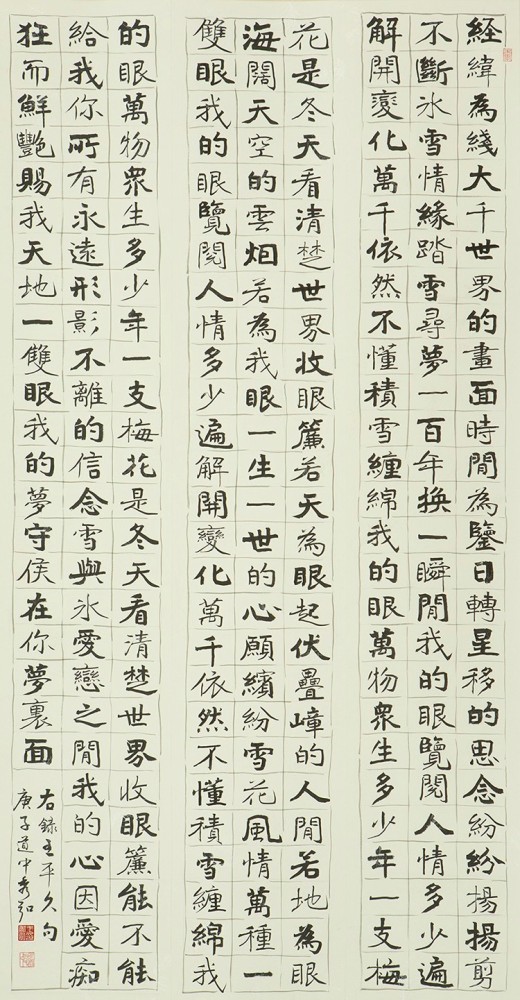 經緯為綫大千世界的畫面時閒為鑒日轉星移的思念紛紛揚揚剪
不斷冰雪情緣踏雪尋夢一百年換一瞬閒我的眼覽閱人情多少遍
解開變化萬千依然不懂積雪纏綿我的眼萬物衆生多少年一支梅
花是冬天看清楚世界收眼簾若天為眼起伏疊嶂的人閒若地為眼
海闊天空的雲烟若為我眼一生一世的心願繽紛雪花風情萬種一
雙眼我的眼覽閱人情多少遍解開變化萬千依然不懂積雪纏綿我
的眼萬物衆生多少年一支梅花是冬天看清楚世界收眼簾能不能
給我你所有永遠形影不離的信念雪與冰愛戀之閒我的心因愛痴
狂而鮮艷賜我天地一雙眼我的夢守侯在你夢裏面
右錄王平久句
庚子道中秀